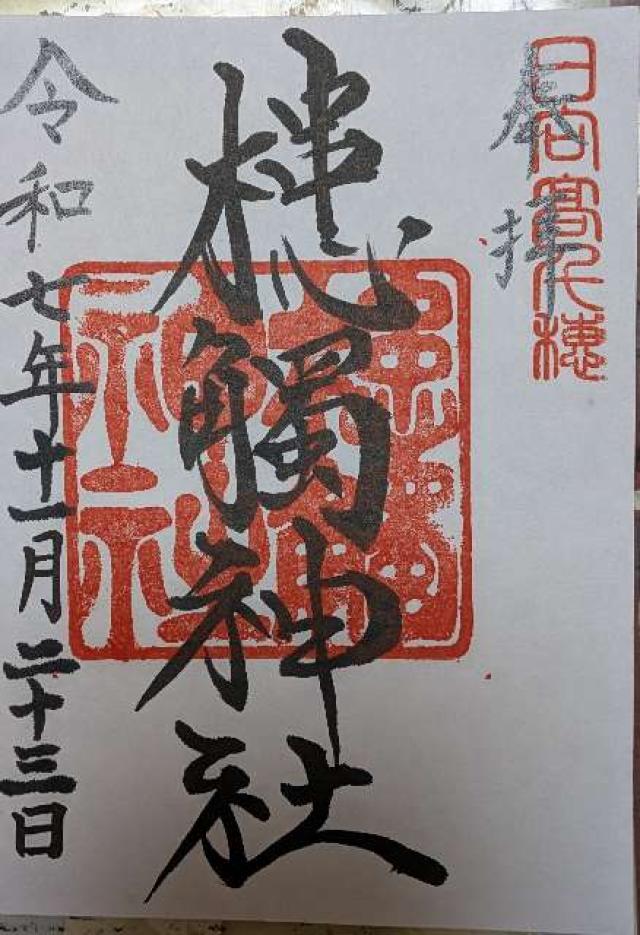 奉拝
日向高千穂
槵觸神社
令和七年十一月二十三日